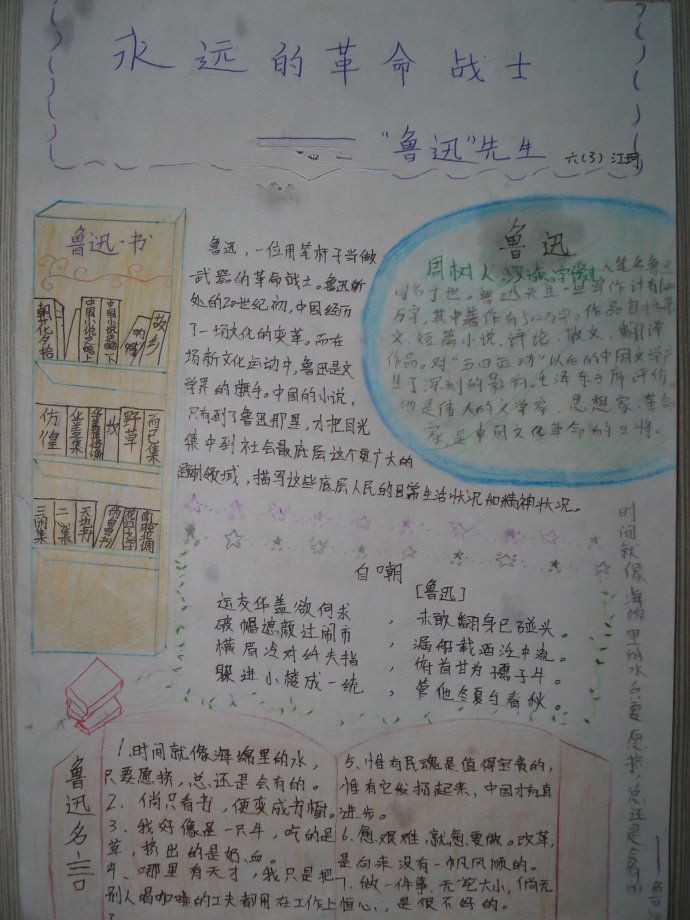 永远的革命战士
——"鲁迅"先生 六(3) 江珂
鲁迅·书
朝花夕拾
中国小说史略上
中国小说史略下
呐喊
故乡
仿惶
华盖集
野草
而已集
三闲集
二心集
南腔北调
鲁迅，一位用笔杆子当做
武器的革命战士。鲁迅所
处的20世纪初，中国经历
了一场文化的变革。而在
场新文化运动中，鲁迅是文
学界的旗手。中国的小说，
只有到了鲁迅那里，才把目光
集中到社会最底层这个更广大的
领域，描写这些底层人民的日常生活状况和精神状况。
鲁迅
周树人，汉族，字豫才，以笔名鲁迅
闻名于世。鲁迅先生一生写作计有600
万字，其中著作有500万字。作品包括杂
文、短篇小说、评论、散文、翻译
作品。对"五四运动"以后的中国文学产
生了深刻的影响。毛泽东主席评价
他是伟大的文学家、思想家、革命
家，是中国文化革命的主将。
自嘲
[鲁迅]
运交华盖欲何求，未敢翻身已碰头。
破帽遮颜过闹市，漏船载酒泛中流。
横眉冷对千夫指，俯首甘为孺子牛。
躲进小楼成一统，管他冬夏与春秋。
时间就像海绵里的水只要愿挤，总还是会有的
——鲁迅
鲁迅名言
1、时间就像海绵里的水，
只要愿挤，总还是会有的。
2、倘只看书，便变成书橱。
3、我好像是一只牛，吃的是
草，挤出的是奶、血。
4、哪里有天才，我只是把
别人喝咖啡的工夫都用在工作上
了
5、惟有民魂是值得宝贵的，
惟有它发扬起来，中国才有真
进步。
6、愈艰难，就愈要做。改革，
是向来没有一帆风顺的。
7、做一件事，无论大小，倘无
恒心，是很不好的。